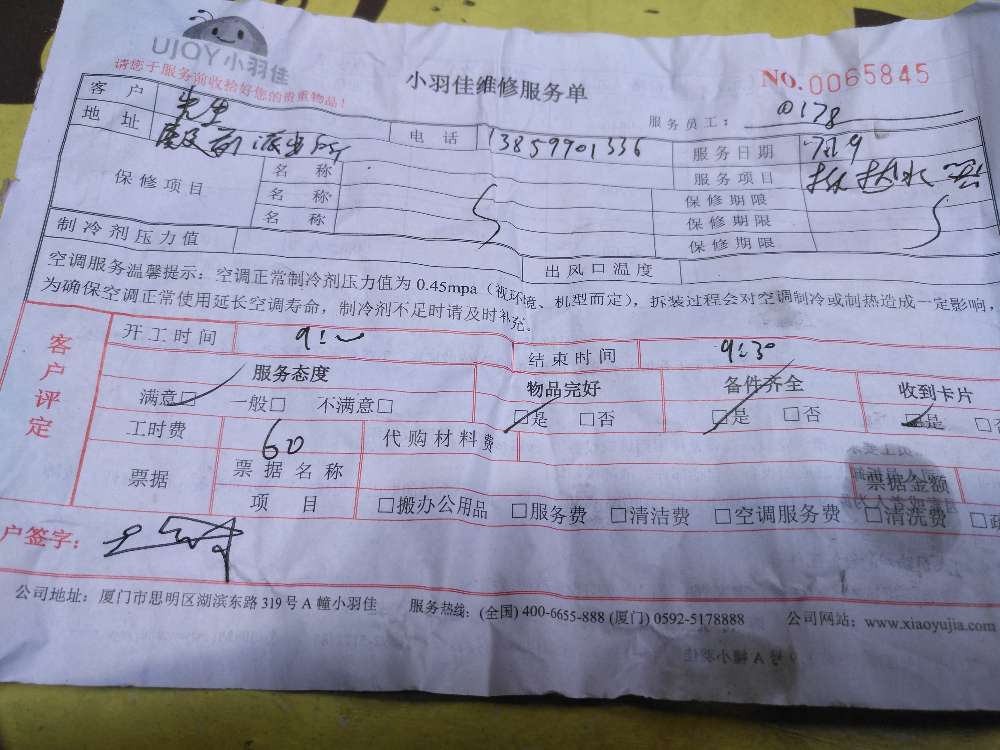 UJOY小羽佳
请您于服务前收拾好您的贵重物品！
小羽佳维修服务单
No.0065845
服务员工：0178
客户 先生
地址 派出所
电话 13859901336
服务日期
服务项目
保修项目
名称 保修期限
名称 保修期限
名称 保修期限
制冷剂压力值 出风口温度
空调服务温馨提示：空调正常制冷剂压力值为 0.45mpa（视环境、机型而定），拆装过程会对空调制冷或制热造成一定影响，
为确保空调正常使用延长空调寿命，制冷剂不足时请及时补充。
客户评定
开工时间 9:00 结束时间 9:30
服务态度 物品完好 备件齐全 收到卡片
满意□ 一般□ 不满意□ □是 □否 □是 □否 □是 □否
工时费 60 代购材料费
票据 票据名称 票据金额
项目 □搬办公用品 □服务费 □清洁费 □空调服务费 □清洗费
户签字：
公司地址：厦门市思明区湖滨东路 319 号 A 幢小羽佳 服务热线：(全国) 400-6655-888 (厦门) 0592-5178888 公司网站：www.xiaoyujia.com